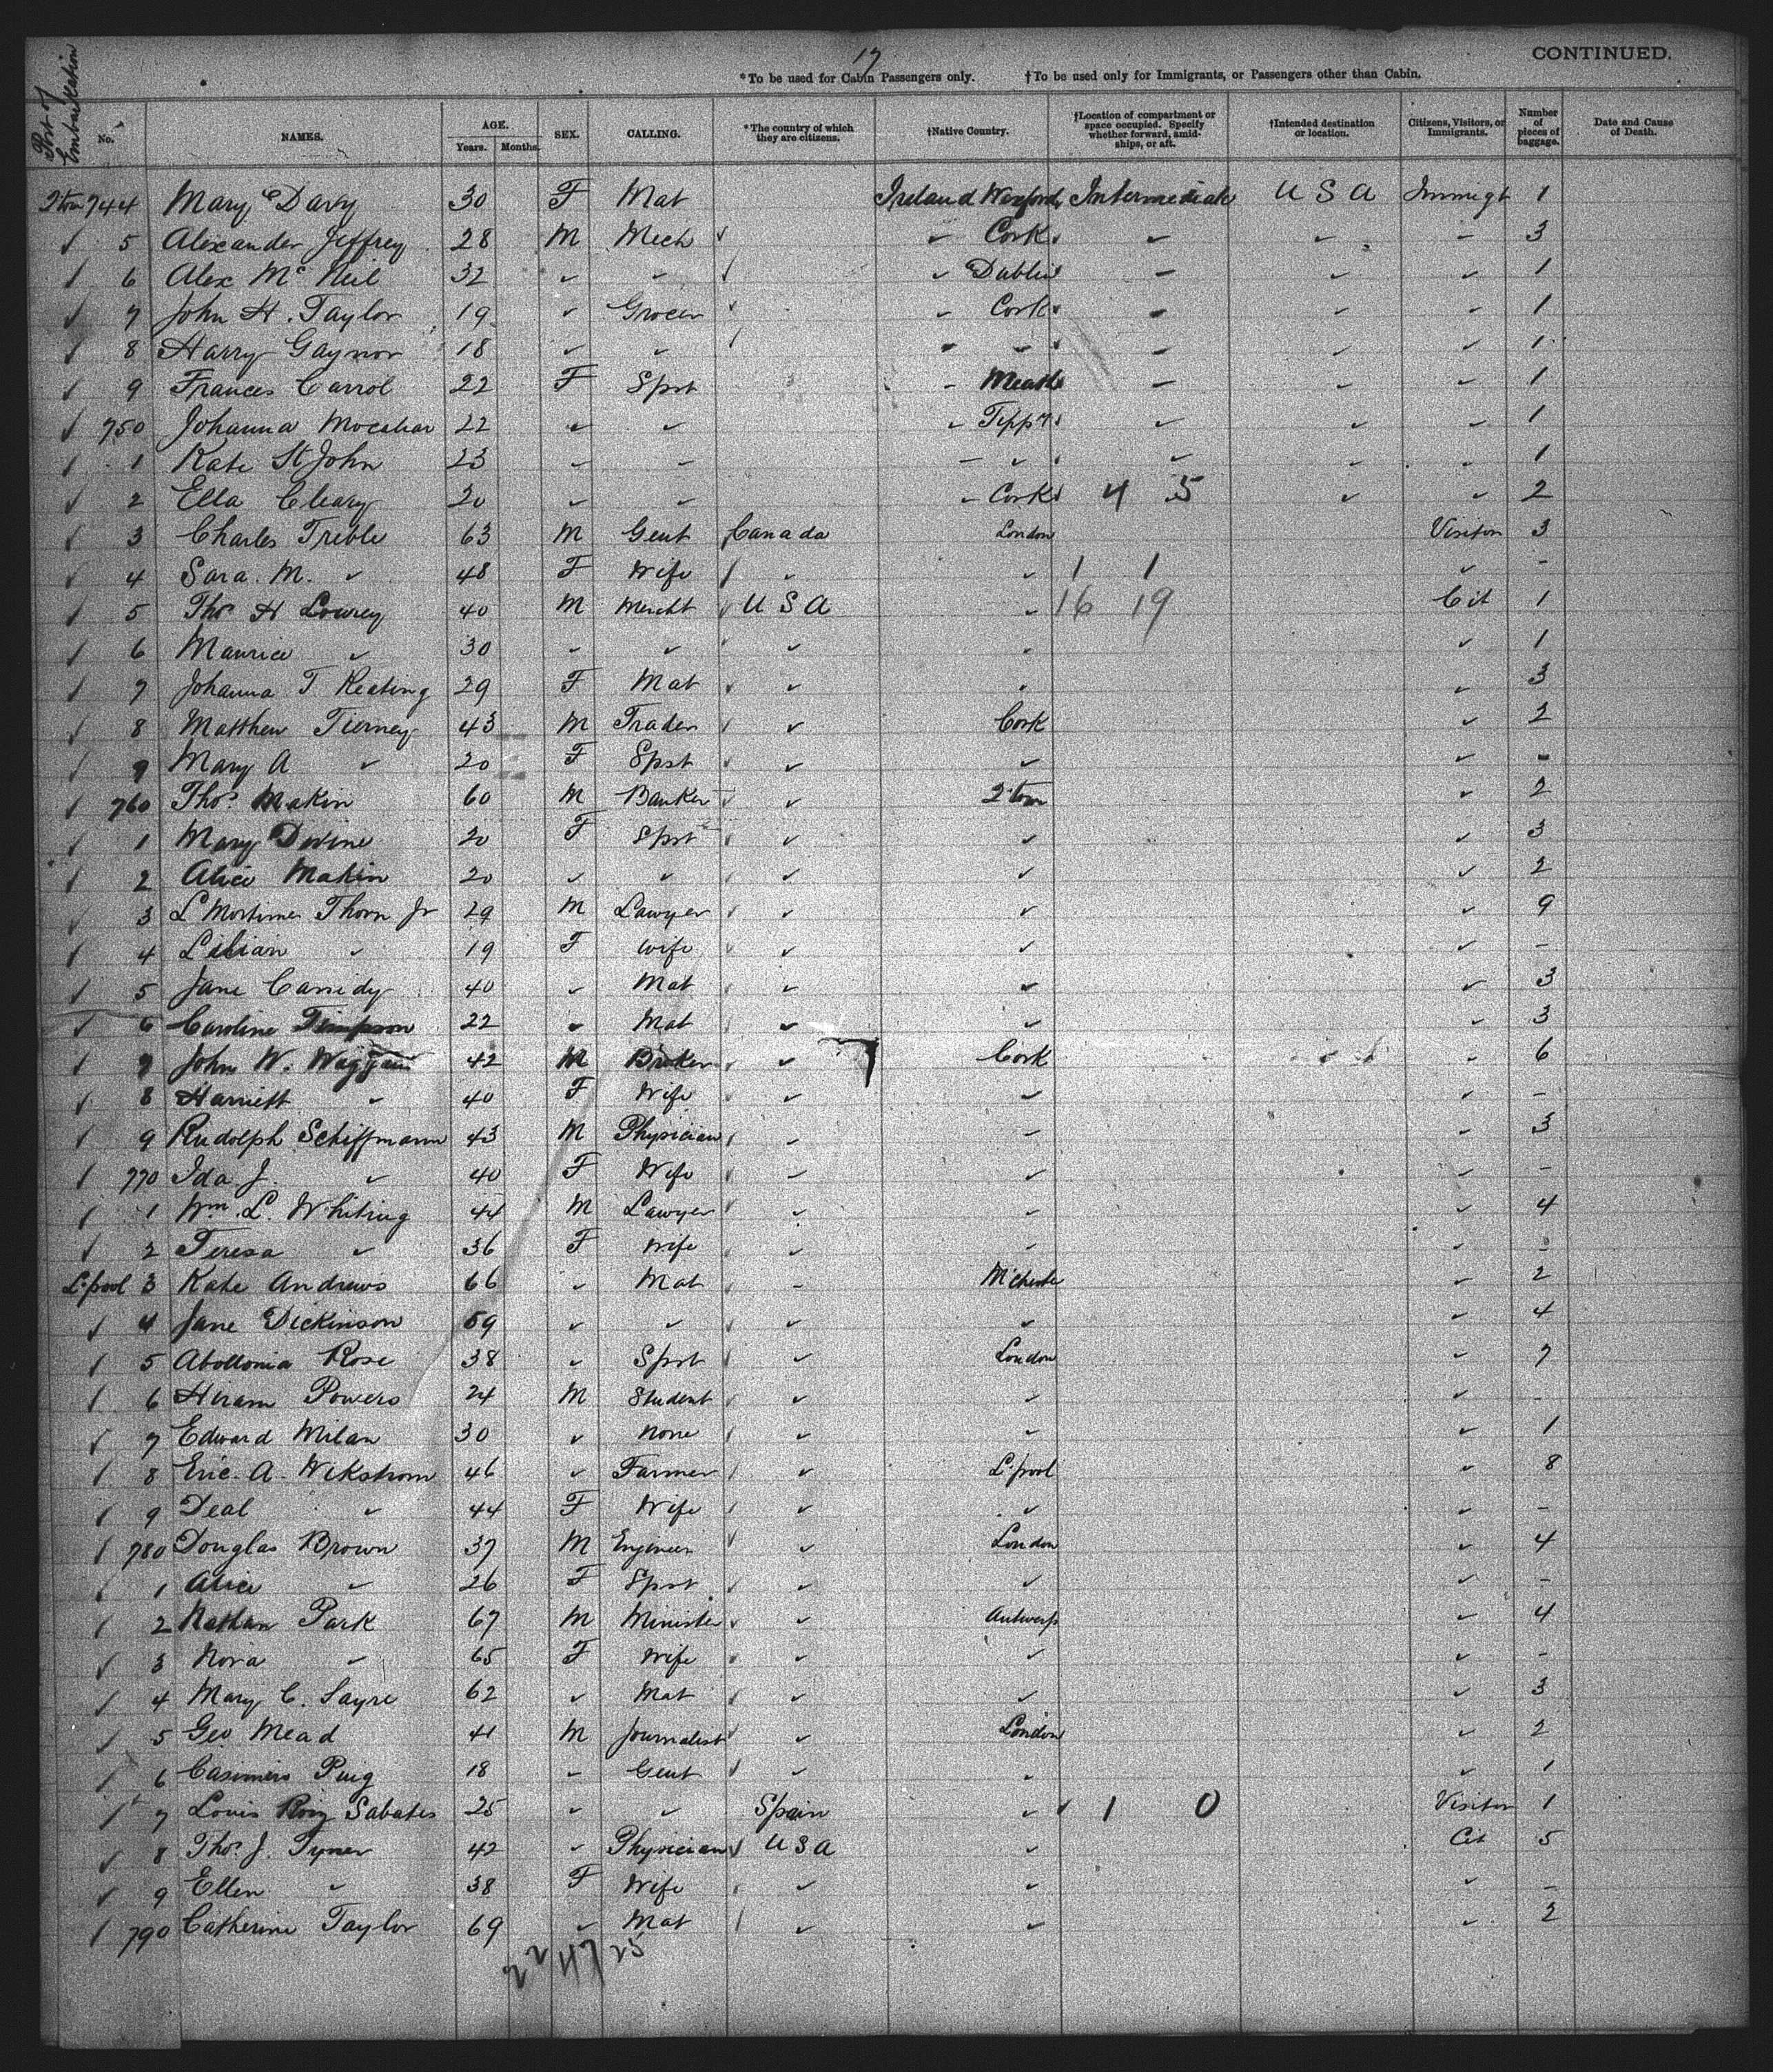 17
CONTINUED.
*To be used for Cabin Passengers only. †To be used only for Immigrants, or Passengers other than Cabin.
Port of Embarkation No. NAMES. AGE. Years. Months. SEX. CALLING. *The country of which they are citizens. †Native Country. †Location of compartment or space occupied. Specify whether forward, amidships, or aft. †Intended destination or location. Citizens, Visitors, or Immigrants. Number of pieces of baggage. Date and Cause of Death.
Qtown 744 Mary Davy 30 F Mat Ireland Wexford Intermediate U S A Immigt 1
✓ 5 Alexander Jeffrey 28 M Mech ✓ Cork ✓ ✓ ✓ 3
✓ 6 Alex Mc Neil 32 ✓ ✓ ✓ Dublin ✓ ✓ ✓ 1
✓ 7 John H. Taylor 19 ✓ Grocer ✓ Cork ✓ ✓ ✓ 1
✓ 8 Harry Gaynor 18 ✓ ✓ ✓ ✓ ✓ ✓ ✓ 1
✓ 9 Frances Carrol 22 F Spst ✓ Meath ✓ ✓ ✓ 1
✓ 750 Johanna 22 ✓ ✓ ✓ Tippy ✓ ✓ ✓ 1
✓ 1 Kate St John 23 ✓ ✓ ✓ ✓ ✓ ✓ ✓ 1
✓ 2 Ella Cleary 20 ✓ ✓ ✓ Cork 4 5 ✓ ✓ 2
✓ 3 Charles Treble 63 M Gent Canada London Visitor 3
✓ 4 Sara. M. ✓ 48 F Wife ✓ ✓ 1 1 ✓ -
✓ 5 Thos H Lowrey 40 M Mercht U S A ✓ 16 19 Cit 1
✓ 6 Maurice ✓ 30 ✓ ✓ ✓ ✓ ✓ 1
✓ 7 Johanna T Keating 29 F Mat ✓ ✓ ✓ 3
✓ 8 Matthew Tierney 43 M Trader ✓ Cork ✓ 2
✓ 9 Mary A ✓ 20 F Spst ✓ ✓ ✓ -
✓ 760 Thos. Makin 60 M Banker ✓ Qtown ✓ 2
✓ 1 Mary Devine 20 F Spst ✓ ✓ ✓ 3
✓ 2 Alice Makin 20 ✓ ✓ ✓ ✓ ✓ 2
✓ 3 L Mortimer Thorn Jr 29 M Lawyer ✓ ✓ ✓ 9
✓ 4 Lilian ✓ 19 F Wife ✓ ✓ ✓ -
✓ 5 Jane Cassidy 40 ✓ Mat ✓ ✓ ✓ 3
✓ 6 Caroline Timpson 22 ✓ Mat ✓ ✓ ✓ 3
✓ 7 John W. 42 M Broker ✓ Cork ✓ 6
✓ 8 Harriett ✓ 40 F Wife ✓ ✓ ✓ -
✓ 9 Rudolph Schiffmann 43 M Physician ✓ ✓ ✓ 3
✓ 770 Ida J. ✓ 40 F Wife ✓ ✓ ✓ -
✓ 1 Wm. L. Whiting 44 M Lawyer ✓ ✓ ✓ 4
✓ 2 Teresa ✓ 36 F Wife ✓ ✓ ✓ -
L'pool 3 Kate Andrews 66 ✓ Mat ✓ M'chester ✓ 2
✓ 4 Jane Dickinson 59 ✓ ✓ ✓ ✓ ✓ 4
✓ 5 Abollonia Rose 38 ✓ Spst ✓ London ✓ 7
✓ 6 Hiram Powers 24 M Student ✓ ✓ ✓ -
✓ 7 Edward Milan 30 ✓ None ✓ ✓ ✓ 1
✓ 8 Eric. A. Wikstrom 46 ✓ Farmer ✓ L'pool ✓ 8
✓ 9 Deal ✓ 44 F Wife ✓ ✓ ✓ -
✓ 780 Douglas Brown 37 M Engineer ✓ London ✓ 4
✓ 1 Alice ✓ 26 F Spst ✓ ✓ ✓ -
✓ 2 Nathan Park 67 M Minister ✓ Antwerp ✓ 4
✓ 3 Nora ✓ 65 F Wife ✓ ✓ ✓ -
✓ 4 Mary C. Sayre 62 ✓ Mat ✓ ✓ ✓ 3
✓ 5 Geo Mead 41 M Journalist ✓ London ✓ 2
✓ 6 Casimiro Puig 18 ✓ Gent ✓ ✓ ✓ 1
✓ 7 Louis Roig Sabates 25 ✓ ✓ Spain ✓ 1 0 Visitor 1
✓ 8 Thos. J. Tyner 42 ✓ Physician U S A ✓ Cit 5
✓ 9 Ellen ✓ 38 F Wife ✓ ✓ ✓ -
✓ 790 Catherine Taylor 69 ✓ Mat ✓ ✓ ✓ 2
22 47 25